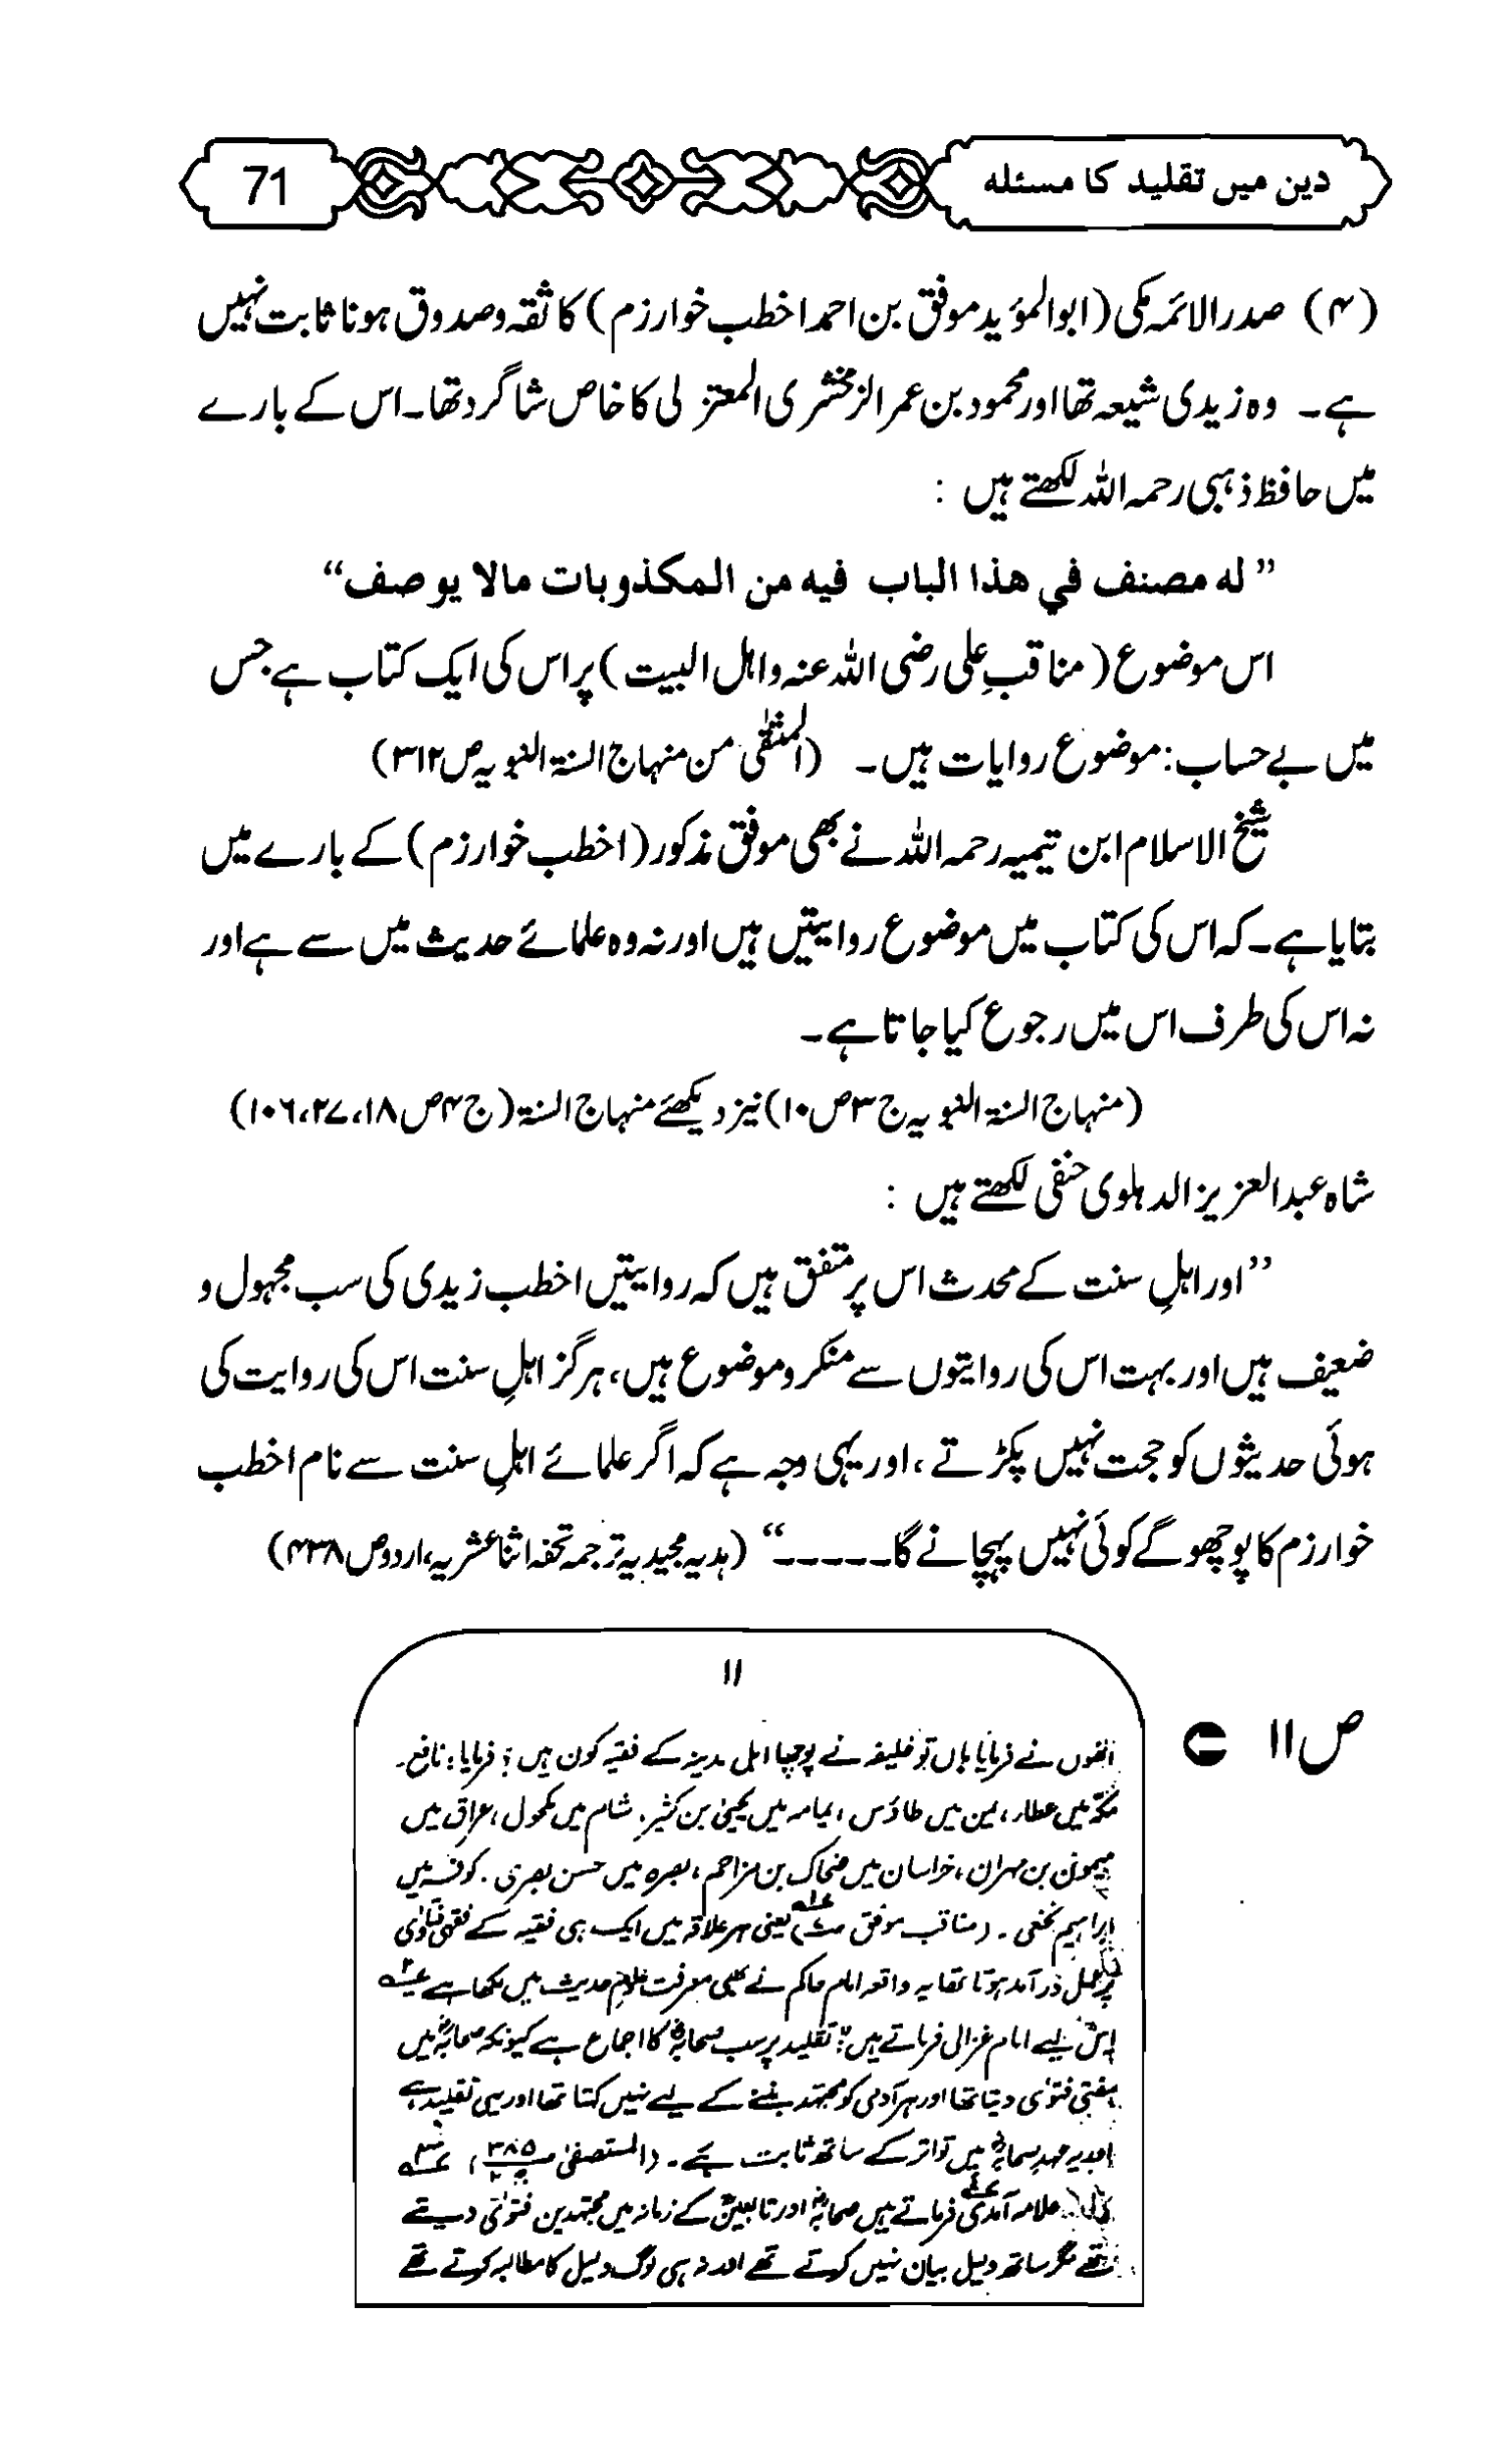 دین میں تقلید کا مسئلہ
71
(۴) صدرالائمہ مکی (ابوالمؤید موفق بن احمد اخطب خوارزم) کا ثقہ وصدوق ہونا ثابت نہیں
ہے۔ وہ زیدی شیعہ تھا اور محمود بن عمر الزمخشری المعتزلی کا خاص شاگرد تھا۔ اس کے بارے
میں حافظ ذہبی رحمہ اللہ لکھتے ہیں :
” له مصنف في هذا الباب فيه من المكذوبات مالا يوصف“
اس موضوع (مناقبِ علی رضی اللہ عنہ واہل البیت) پر اس کی ایک کتاب ہے جس
میں بے حساب: موضوع روایات ہیں۔ (المنتقیٰ من منہاج السنۃ النبویہ ص۳۱۲)
شیخ الاسلام ابن تیمیہ رحمہ اللہ نے بھی موفق مذکور (اخطب خوارزم) کے بارے میں
بتایا ہے۔ کہ اس کی کتاب میں موضوع روایتیں ہیں اور نہ وہ علمائے حدیث میں سے ہے اور
نہ اس کی طرف اس میں رجوع کیا جاتا ہے۔
(منہاج السنۃ النبویہ ج۳ص۱۰) نیز دیکھئے منہاج السنۃ (ج۴ص۱۸،۲۷،۱۰۶)
شاہ عبدالعزیز الدہلوی حنفی لکھتے ہیں :
”اور اہلِ سنت کے محدث اس پر متفق ہیں کہ روایتیں اخطب زیدی کی سب مجہول و
ضعیف ہیں اور بہت اس کی روایتوں سے منکر وموضوع ہیں، ہرگز اہلِ سنت اس کی روایت کی
ہوئی حدیثوں کو حجت نہیں پکڑتے، اور یہی وجہ ہے کہ اگر علمائے اہلِ سنت سے نام اخطب
خوارزم کا پوچھو گے کوئی نہیں پہچانے گا------“ (ہدیہ مجیدیہ ترجمہ تحفہ اثنا عشریہ، اردو ص۴۳۸)
ص۱۱
۱۱
انھوں نے فرمایا ہاں تو خلیفہ نے پوچھا اہل مدینہ کے فقیہ کون ہیں؟ فرمایا: نافع۔
مکہ میں عطار، یمن میں طاؤس، یمامہ میں یحییٰ بن کثیر، شام میں مکحول، عراق میں
میمون بن مہران، خراسان میں ضحاک بن مزاحم، بصرہ میں حسن بصری، کوفہ میں
ابراہیم نخعی۔ (مناقب موفق) یعنی ہر علاقہ میں ایک ہی فقیہ کے فقہی فتاویٰ
پر عمل درآمد ہوتا تھا یہ واقعہ امام حاکم نے بھی معرفت علوم حدیث میں لکھا ہے
اس لیے امام غزالی فرماتے ہیں: تقلید پر سب صحابہؓ کا اجماع ہے کیونکہ صحابہؓ میں
مفتی فتویٰ دیتا تھا اور ہر آدمی کو مجتہد بننے کے لیے نہیں کہتا تھا اور یہی تقلید ہے
اور یہ عہد صحابہؓ میں تواتر کے ساتھ ثابت ہے۔ (المستصفیٰ ۳۸۵)
علامہ آمدی فرماتے ہیں صحابہؓ اور تابعینؒ کے زمانہ میں مجتہدین فتویٰ دیتے
تھے مگر ساتھ دلیل بیان نہیں کرتے تھے اور نہ ہی لوگ دلیل کا مطالبہ کرتے تھے